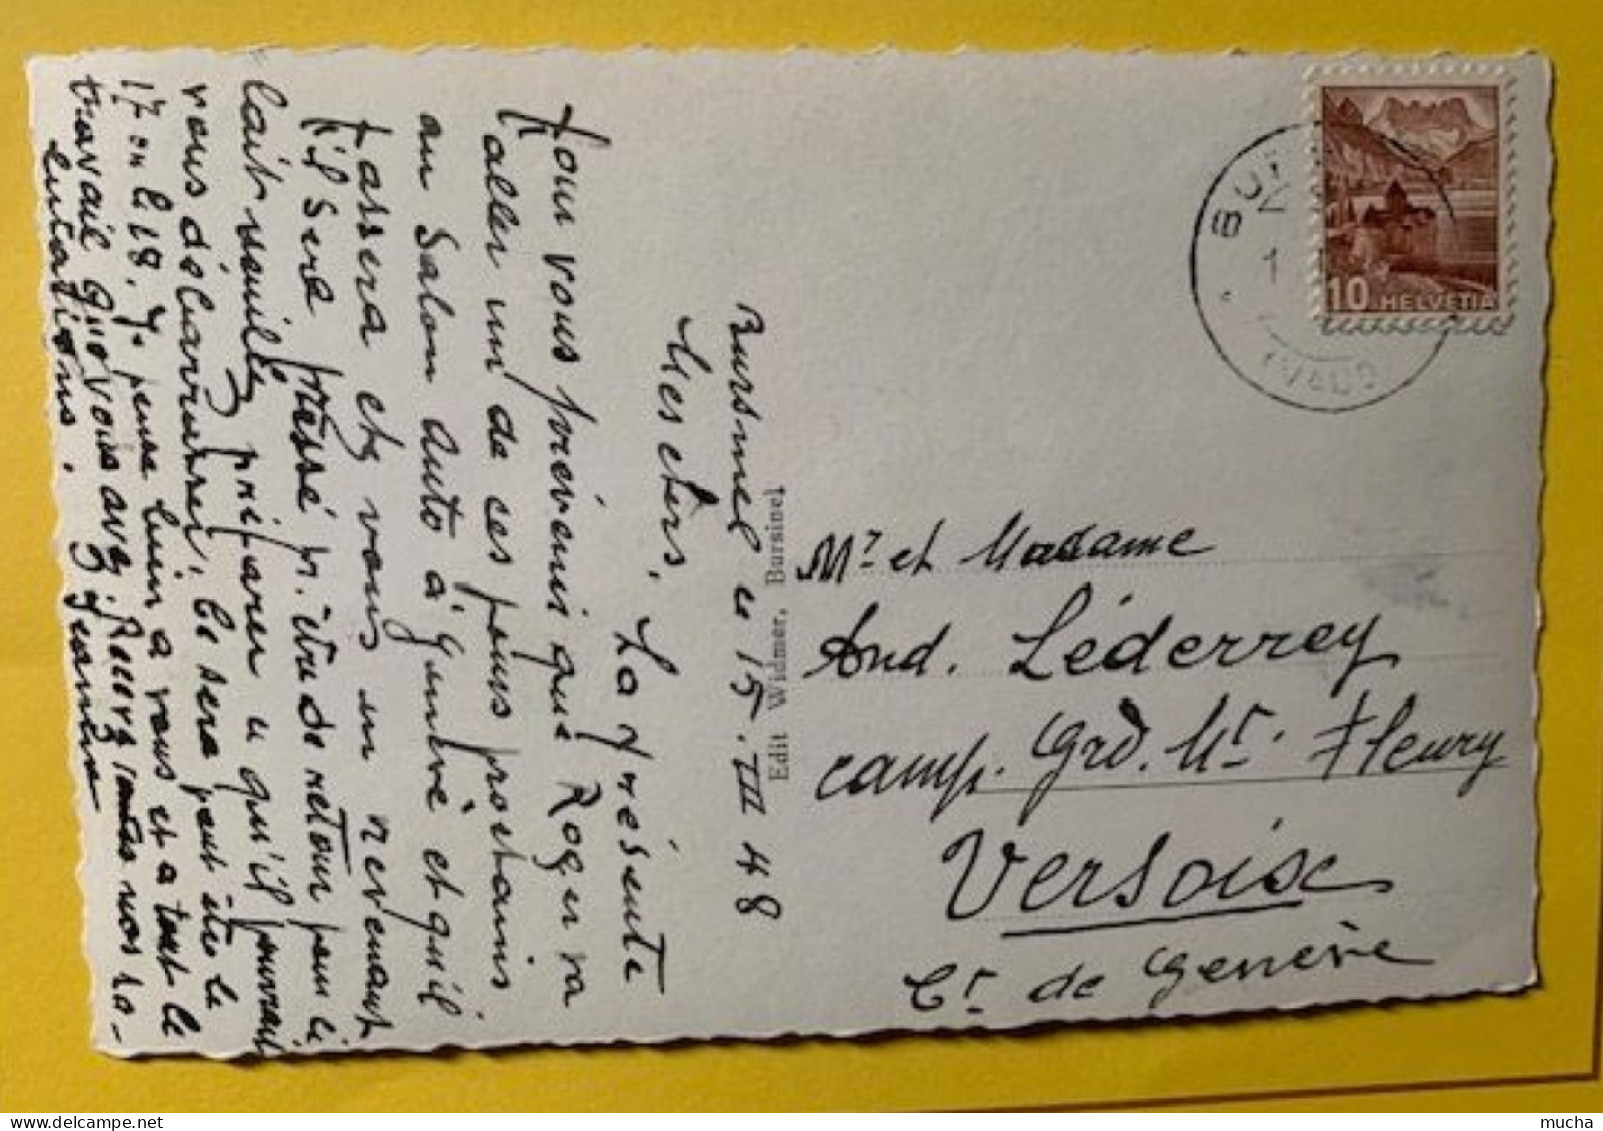 Bursinel le 15. III 48
Mes chers,
La présente
pour vous prévenir que Roger va
aller un de ces jours prochains
au Salon Auto à Genève et qu'il
passera chez vous en revenant
s'il sera pressé d'être de retour pour le
lait veuillez préparer ce qu'il pourrait
vous débarrasser, ce sera peut être le
17 ou le 18. Je pense bien à vous et à tout le
travail que vous avez. Recevez toutes nos sa-
lutations.
Edit Widmer, Bursinel
Mr et Madame
And. Léderrey
camp. Grd. Mt. Fleury
Versoix
Ct de Genève
10 HELVETIA
VAUD
mucha